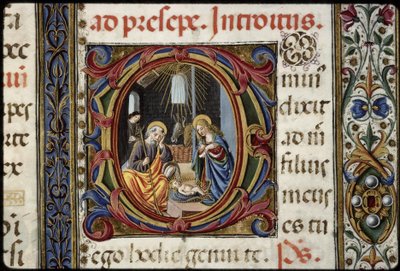 ad presepe. Introitus.
DO
min⁹
dixit
ad m̄
filius
meus
es tu
ego hodie genui te. Ps.